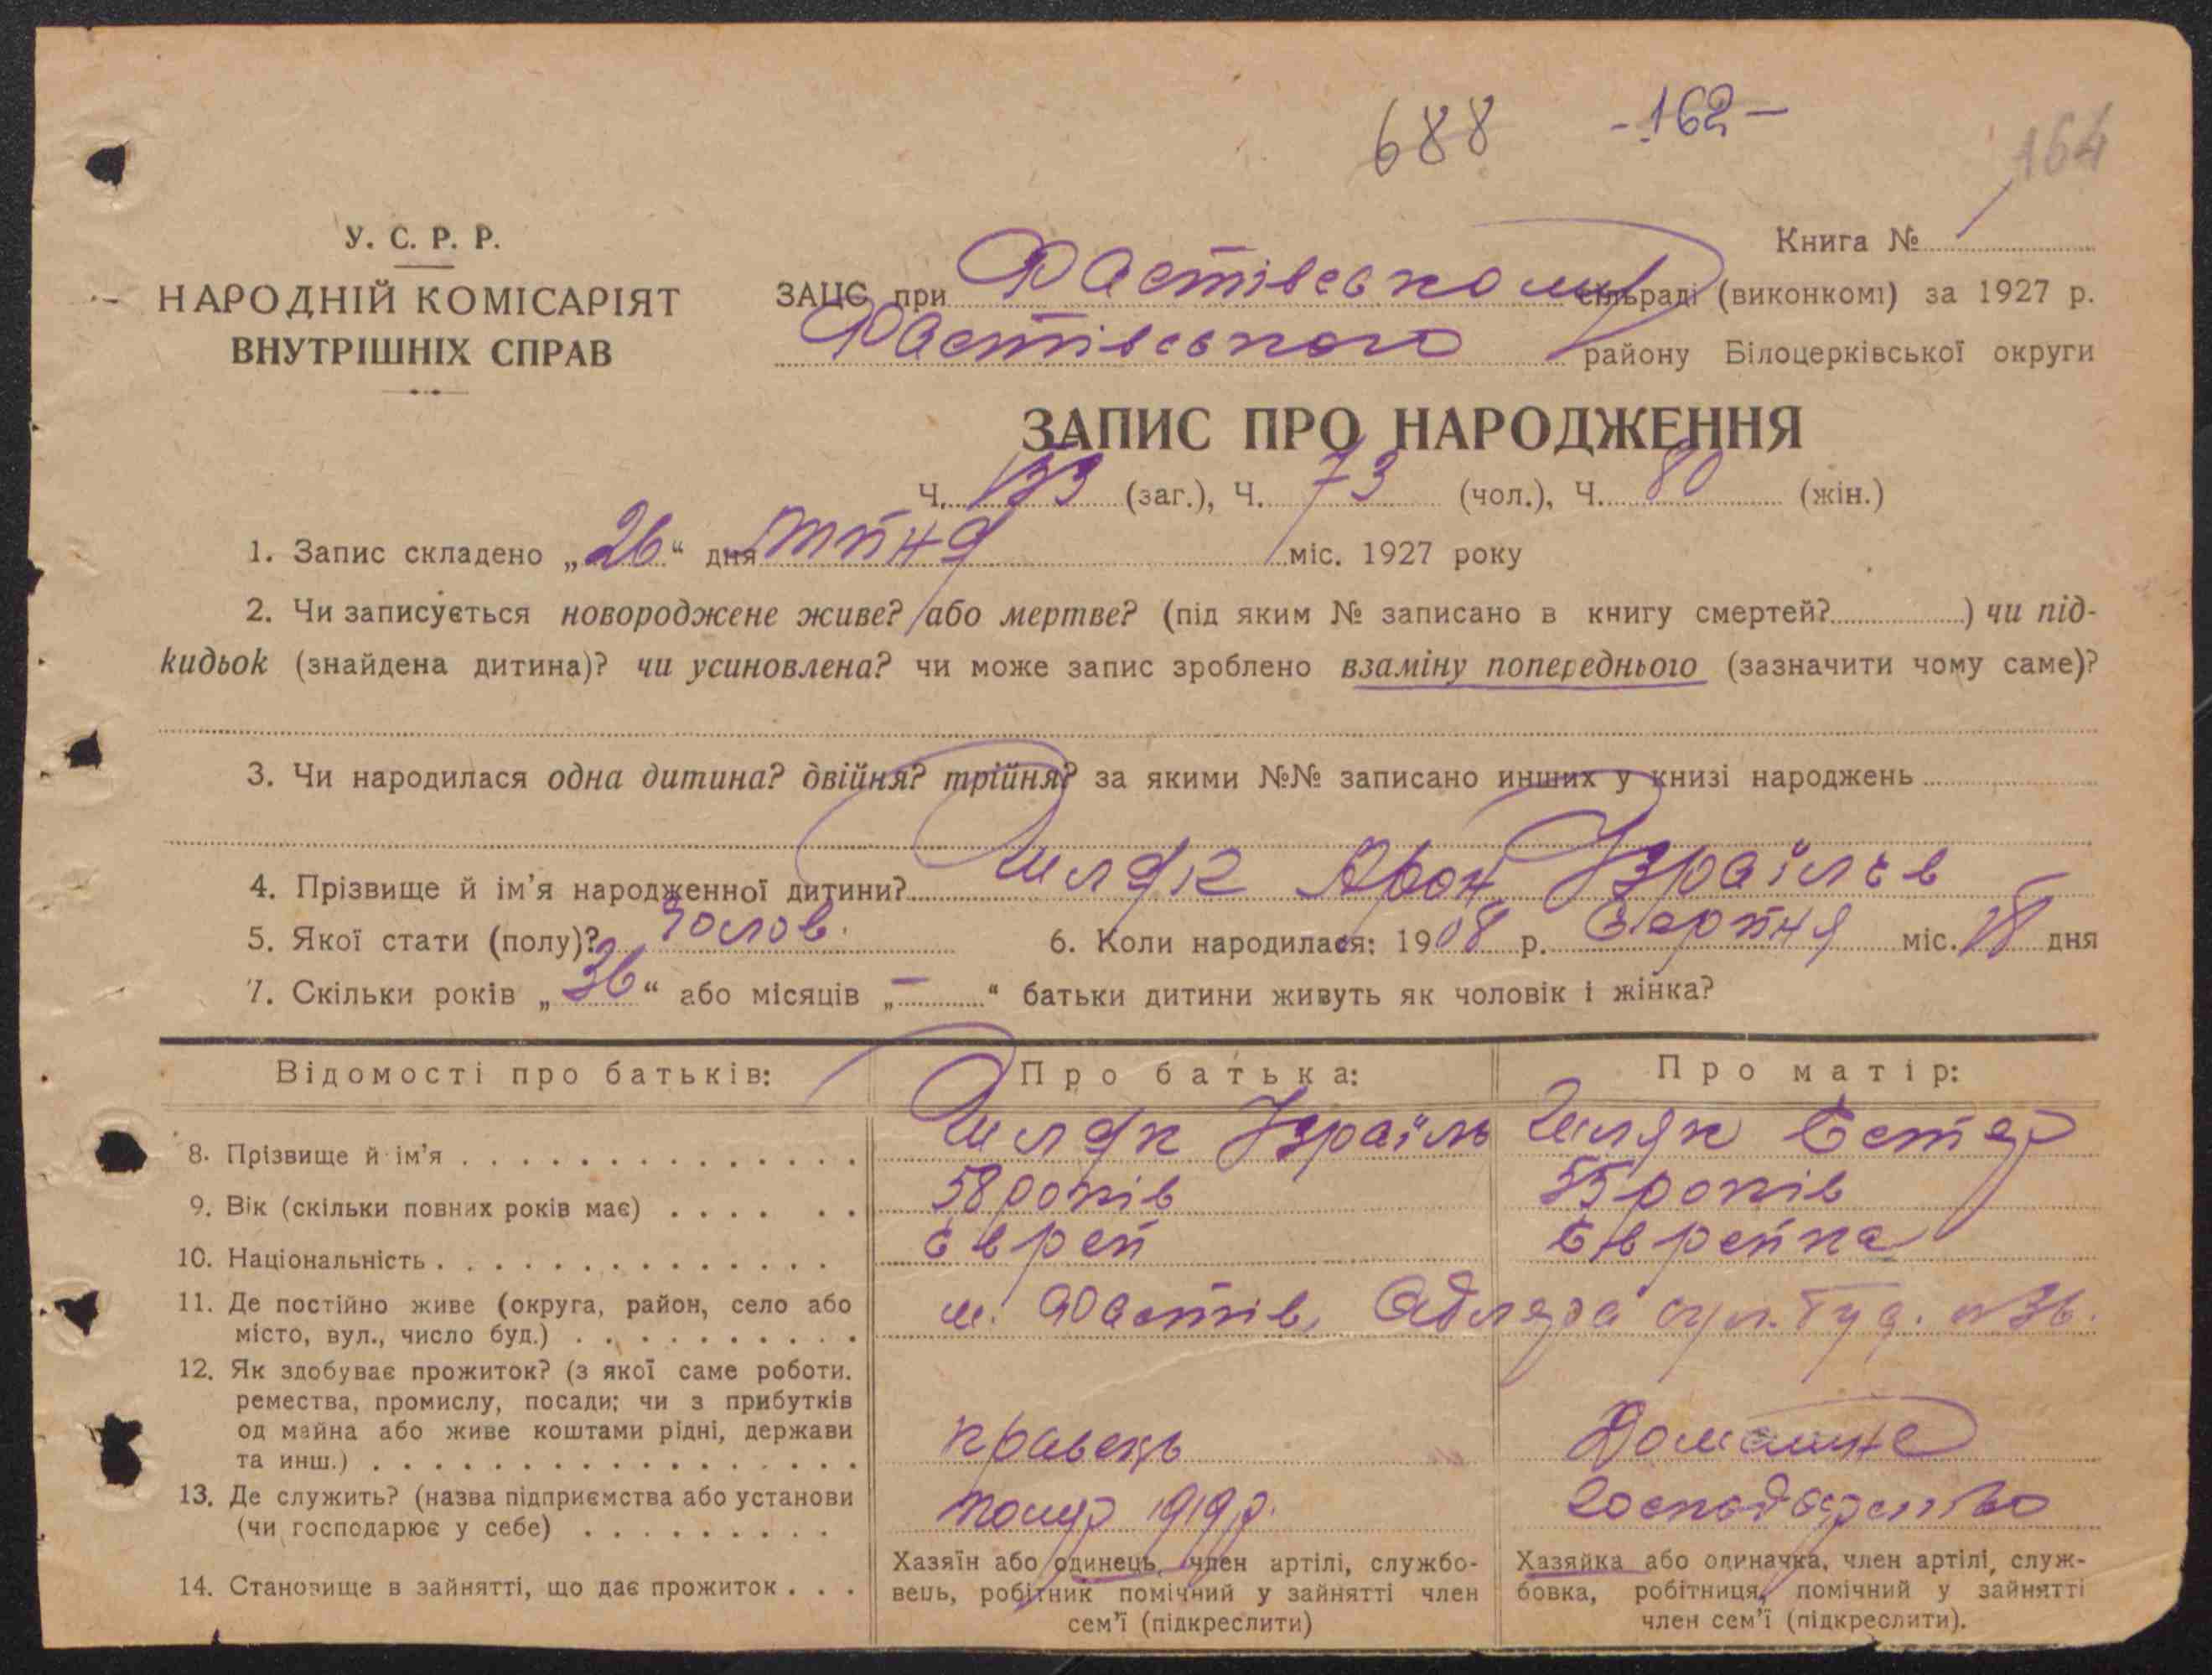 688 -162-
164
У. С. Р. Р.
НАРОДНІЙ КОМІСАРІЯТ
ВНУТРІШНІХ СПРАВ
Книга № 1
ЗАЦС при Фастівському сільраді (виконкомі) за 1927 р.
Фастівського району Білоцерківської округи
ЗАПИС ПРО НАРОДЖЕННЯ
Ч. 153 (заг.), Ч. 73 (чол.), Ч. 80 (жін.)
1. Запис складено „26“ дня міс. 1927 року
2. Чи записується новороджене живе? або мертве? (під яким № записано в книгу смертей?) чи під-
кидьок (знайдена дитина)? чи усиновлена? чи може запис зроблено взаміну попереднього (зазначити чому саме)?
3. Чи народилася одна дитина? двійня? трійня? за якими №№ записано инших у книзі народжень
4. Прізвище й ім’я народженної дитини? Шляк Арон Ізраїлєв
5. Якої стати (полу)? чолов. 6. Коли народилася: 1908 р. Серпня міс. 18 дня
7. Скільки років „36“ або місяців „—“ батьки дитини живуть як чоловік і жінка?
Відомості про батьків: Про батька: Про матір:
8. Прізвище й ім’я Шляк Ізраїль Шляк Естер
9. Вік (скільки повних років має) 58 років 55 років
10. Національність Єврей Єврейка
11. Де постійно живе (округа, район, село або
місто, вул., число буд.) м. Фастів, вул. буд. №36.
12. Як здобуває прожиток? (з якої саме роботи.
ремества, промислу, посади; чи з прибутків
од майна або живе коштами рідні, держави
та инш.) кравець Домашнє
13. Де служить? (назва підприємства або установи
(чи господарює у себе) помер 1919 р. господарство
14. Становище в зайнятті, що дає прожиток
Хазяїн або одинець, член артілі, службо-
вець, робітник помічний у зайнятті член
сем’ї (підкреслити)
Хазяйка або одиначка, член артілі, служ-
бовка, робітниця, помічний у зайнятті
член сем’ї (підкреслити).